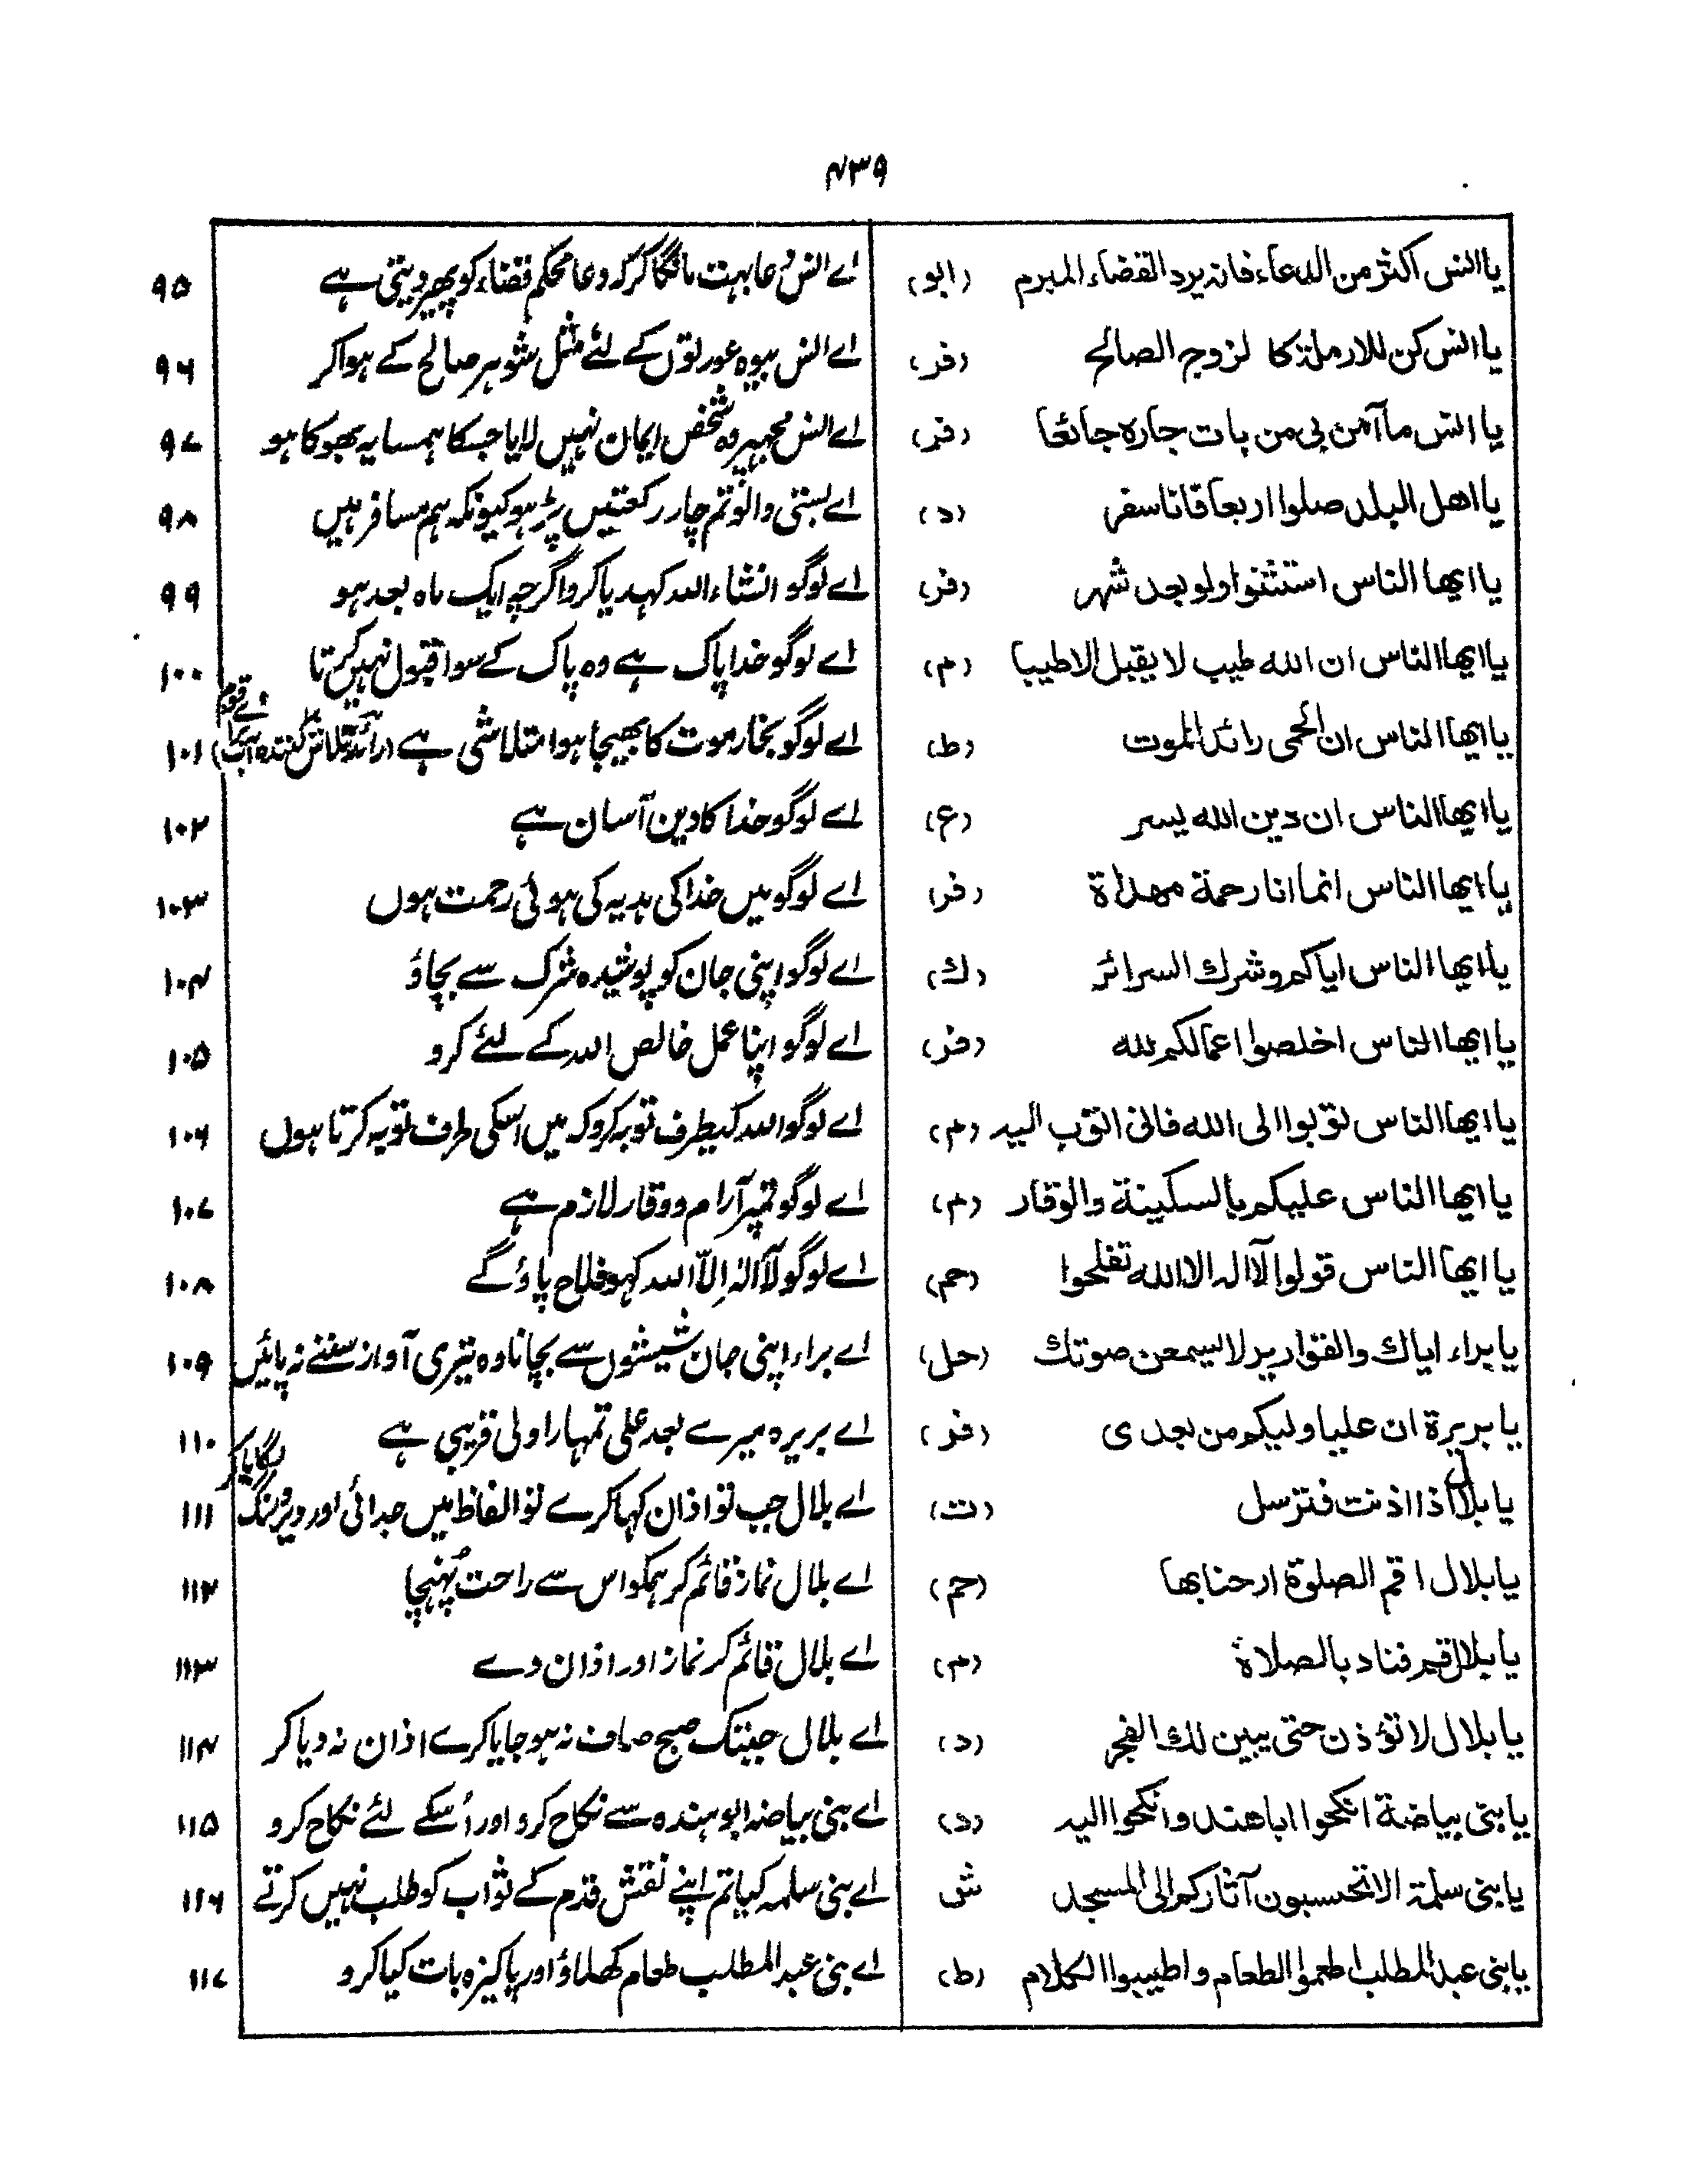 ۴۳۹
یا انس اکثر من الدعاء فانہ یرد القضاء المبرم (ابو) اے انس دعا بہت مانگا کر کہ دعا محکم قضاء کو پھیر دیتی ہے ۹۵
یا انس کن للارملۃ کا لزوج الصالح (فر) اے انس بیوہ عورتوں کے لئے مثل شوہر صالح کے ہوا کر ۹۶
یا انس ما آمن بی من بات جارہ جائعا (فر) اے انس مجھپر وہ شخص ایمان نہیں لایا جسکا ہمسایہ بھوکا ہو ۹۷
یا اھل البلد صلوا اربعا فانا سفر (د) اے بستی والو تم چار رکعتیں پڑھو کیونکہ ہم مسافر ہیں ۹۸
یا ایھا الناس استثنوا ولو بعد شھر (فر) اے لوگو انشاء اللہ کہدیا کرو اگرچہ ایک ماہ بعد ہو ۹۹
یا ایھا الناس ان اللہ طیب لا یقبل الا طیبا (م) اے لوگو خدا پاک ہے وہ پاک کے سوا قبول نہیں کرتا ۱۰۰
یا ایھا الناس ان الحمی رائد الموت (ط) اے لوگو بخار موت کا بھیجا ہوا متلاشی ہے (رائد تلاش کنندہ آب برائے قوم) ۱۰۱
یا ایھا الناس ان دین اللہ یسر (ع) اے لوگو خدا کا دین آسان ہے ۱۰۲
یا ایھا الناس انما انا رحمۃ مھداۃ (فر) اے لوگو میں خدا کی ہدیہ کی ہوئی رحمت ہوں ۱۰۳
یا ایھا الناس ایاکم و شرك السرائر (ك) اے لوگو اپنی جان کو پوشیدہ شرک سے بچاؤ ۱۰۴
یا ایھا الناس اخلصوا اعمالکم للہ (فر) اے لوگو اپنا عمل خالص اللہ کے لئے کرو ۱۰۵
یا ایھا الناس توبوا الی اللہ فانی اتوب الیہ (م) اے لوگو اللہ کیطرف توبہ کرو کہ میں اسکی طرف توبہ کرتا ہوں ۱۰۶
یا ایھا الناس علیکم بالسکینۃ والوقار (م) اے لوگو تمپر آرام و وقار لازم ہے ۱۰۷
یا ایھا الناس قولوا لآ الہ الا اللہ تفلحوا (حم) اے لوگو لآ الٰہ اِلّا اللہ کہو فلاح پاؤ گے ۱۰۸
یا براء ایاك والقواریر لا یسمعن صوتك (حل) اے براء اپنی جان شیشوں سے بچانا وہ تیری آواز سننے نہ پائیں ۱۰۹
یا بریرۃ ان علیا ولیکم من بعدی (فر) اے بریرہ میرے بعد علی تمہارا ولی قریبی ہے ۱۱۰
یا بلال اذا اذنت فترسل (ت) اے بلال جب تو اذان کہا کرے تو الفاظ میں جدائی اور دیر و درنگ لگایا کر ۱۱۱
یا بلال اقم الصلوۃ ارحنا بھا (حم) اے بلال نماز قائم کر ہمکو اس سے راحت پُہنچا ۱۱۲
یا بلال قم فناد بالصلاۃ (م) اے بلال قائم کر نماز اور اذان دے ۱۱۳
یا بلال لا تؤذن حتی یبین لك الفجر (د) اے بلال جبتک صبح صاف نہ ہو جایا کرے اذان نہ دیا کر ۱۱۴
یا بنی بیاضۃ انکحوا اباھند وانکحوا الیہ (د) اے بنی بیاضہ ابو ہندہ سے نکاح کرو اور اُسکے لئے نکاح کرو ۱۱۵
یا بنی سلمۃ الا تحسبون آثارکم الی المسجد ش اے بنی سلمہ کیا تم اپنے نقش قدم کے ثواب کو طلب نہیں کرتے ۱۱۶
یا بنی عبد المطلب اطعموا الطعام و اطیبوا الکلام (ط) اے بنی عبد المطلب طعام کھلاؤ اور پاکیزہ بات کیا کرو ۱۱۷